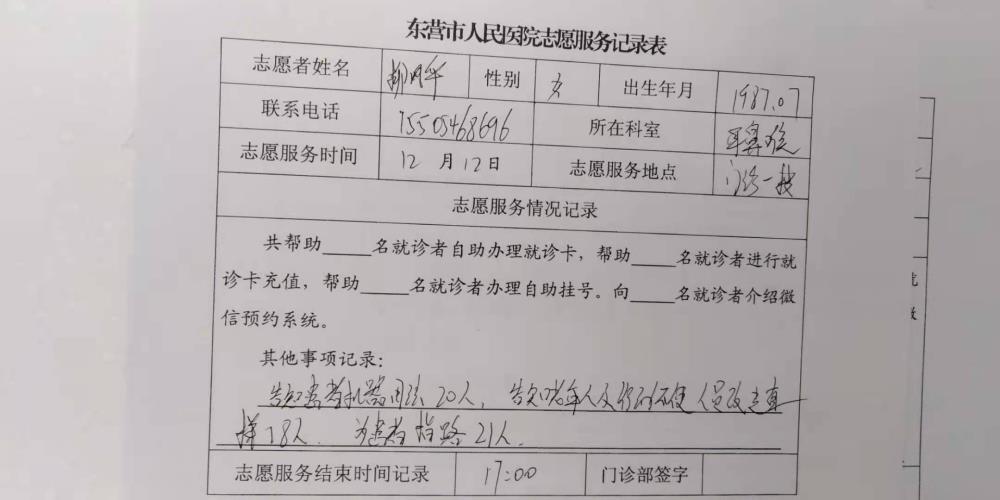 东营市人民医院志愿服务记录表
志愿者姓名 性别 女 出生年月 1987.07
联系电话 15505468696 所在科室 耳鼻喉
志愿服务时间 12月12日 志愿服务地点 门诊一楼
志愿服务情况记录
共帮助_____名就诊者自助办理就诊卡，帮助_____名就诊者进行就
诊卡充值，帮助_____名就诊者办理自助挂号。向_____名就诊者介绍微
信预约系统。
其他事项记录：
告知患者机器用法20人，告知老年人及行动不便人员
18人。为患者指路21人。
志愿服务结束时间记录 17:00 门诊部签字